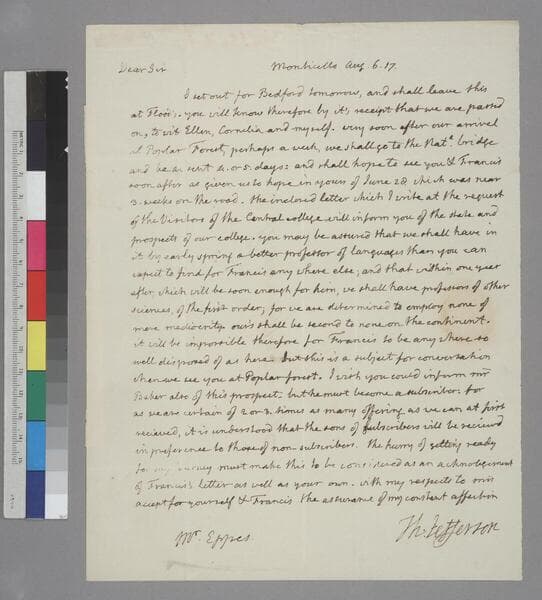 Dear Sir Monticello Aug. 6. 17.
I set out for Bedford tomorrow, and shall leave this
at Flood's. you will know therefore by it's receipt that we are passed
on, to wit Ellen, Cornelia and myself. very soon after our arrival
at Poplar Forest, perhaps a week, we shall go to the Natl. bridge
and be absent 4. or 5. days: and shall hope to see you & Francis
soon after as given us to hope in yours of June 28 which was near
3. weeks on the road. the inclosed letter which I write at the request
of the Visitors of the Central college will inform you of the state and
prospects of our college. you may be assured that we shall have in
it by early spring a better professor of languages than you can
expect to find for Francis any where else; and that within one year
after, which will be soon enough for him, we shall have professors of other
sciences, of the first order; for we are determined to employ none of
mere mediocrity. ours shall be second to none on the continent.
it will be impossible therefore for Francis to be any where so
well disposed of as here. but this is a subject for conversation
when we see you at Poplar forest. I wish you could inform mr
Baker also of this prospect: but he must become a subscriber: for
as we are certain of 2 or 3. times as many offering as we can at first
recieve, it is understood that the sons of subscribers will be recieved
in preference to those of non-subscribers. The hurry of getting ready
for my journey must make this to be considered as an acknolegement
of Francis's letter as well as your own. with my respects to mrs
accept for yourself & Francis the assurance of my constant affection
Th: Jefferson
Mr. Eppes.